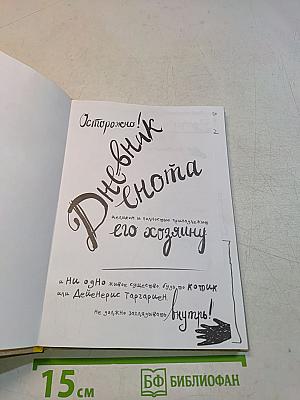 Осторожно!
Дневник
енота
целиком и полностью принадлежит
его хозяину
и ни одно живое существо, будь то котик
или Дейенерис Таргариен,
не должно заглядывать внутрь!
15 см
БФ БИБЛИОФАН